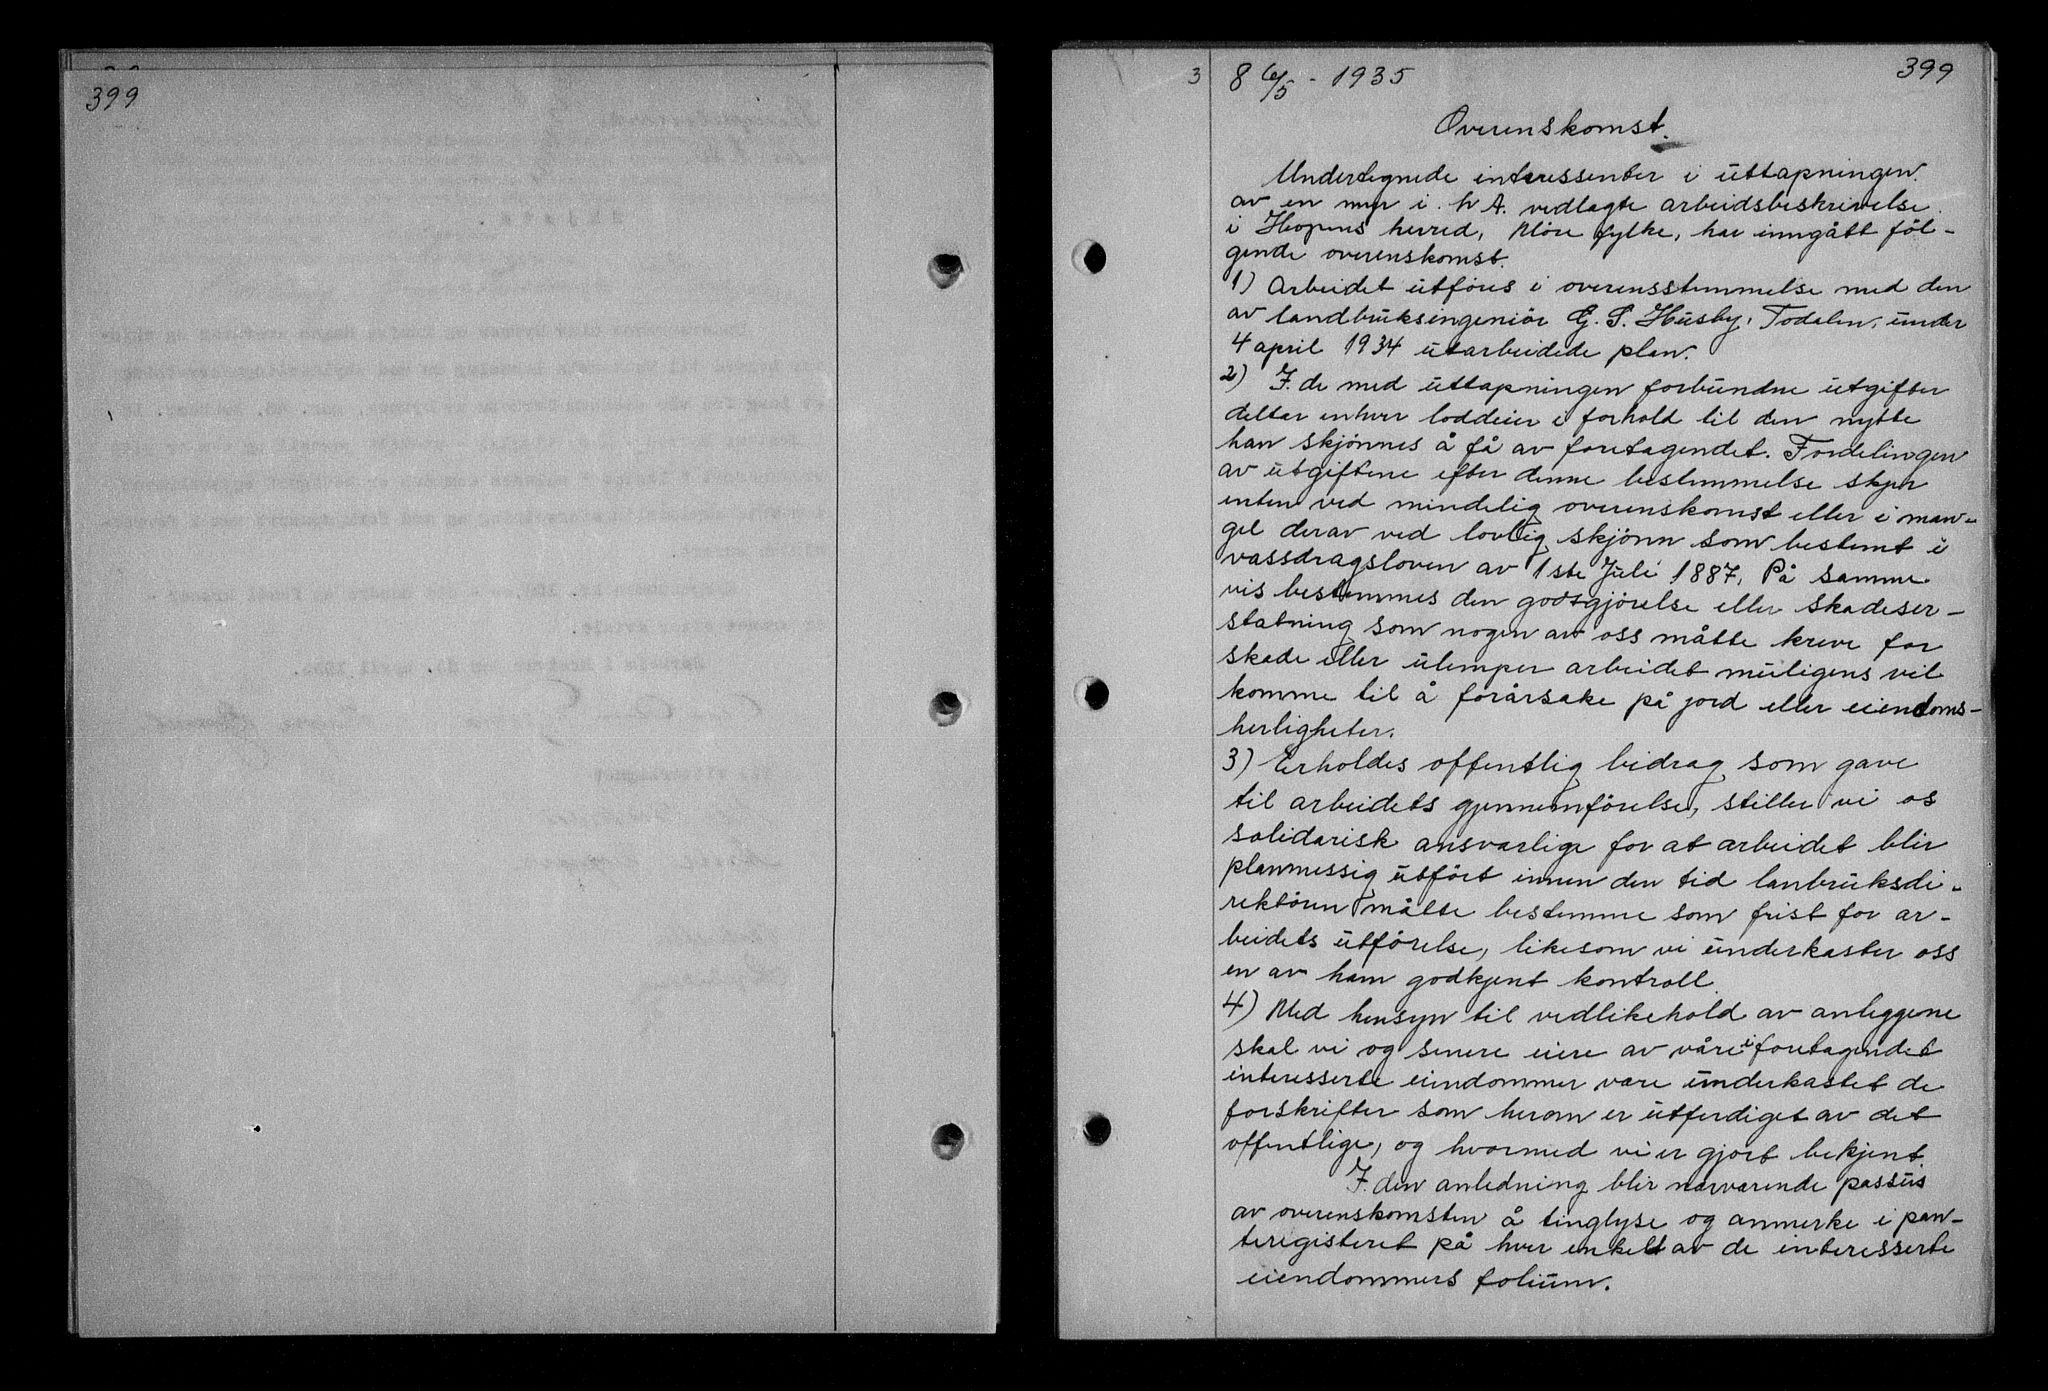 399
3
8 6/5 - 1935
399
Overenskomst.
Undertegnede interessenter i uttapningen
av en myr i h.t. A. vedlagte arbeidsbeskrivelse
i Hopens herred, Möre fylke, har inngått föl-
gende overenskomst.
1) Arbeidet utföres i overensstemmelse med den
av landbruksingeniör G. S. Husby, Todalen, under
4 april 1934 utarbeidede plan.
2) I de med uttapningen forbundne utgifter
deltar enhver loddeier i forhold til den nytte
han skjönnes å få av foretagendet. Fordelingen
av utgiftene efter denne bestemmelse skjer
enten ved mindelig overenskomst eller i man-
gel derav ved lovlig skjönn som bestemt i
vassdragsloven av 1ste Juli 1887. På samme
vis bestemmes den godtgjörelse eller skadeser-
statning som nogen av oss måtte kreve for
skade eller ulemper arbeidet muligens vil
komme til å forårsake på jord eller eiendoms-
herligheter.
3) Erholdes offentlig bidrag som gave
til arbeidets gjennemförelse, stiller vi os
solidarisk ansvarlige for at arbeidet blir
planmessig utfört innen den tid lanbruksdi-
rektören måtte bestemme som frist for ar-
beidets utförelse, likesom vi underkaster oss
en av ham godkjent kontroll.
4) Med hensyn til vedlikehold av anleggene
skal vi og senere eiere av våre i foretagendet
interesserte eiendommer være underkastet de
forskrifter som herom er utferdiget av det
offentlige, og hvormed vi er gjort bekjent.
I den anledning blir nærværende passus
av overenskomsten å tinglyse og anmerke i pan-
teregisteret på hver enkelt av de interesserte
eiendommers folium.